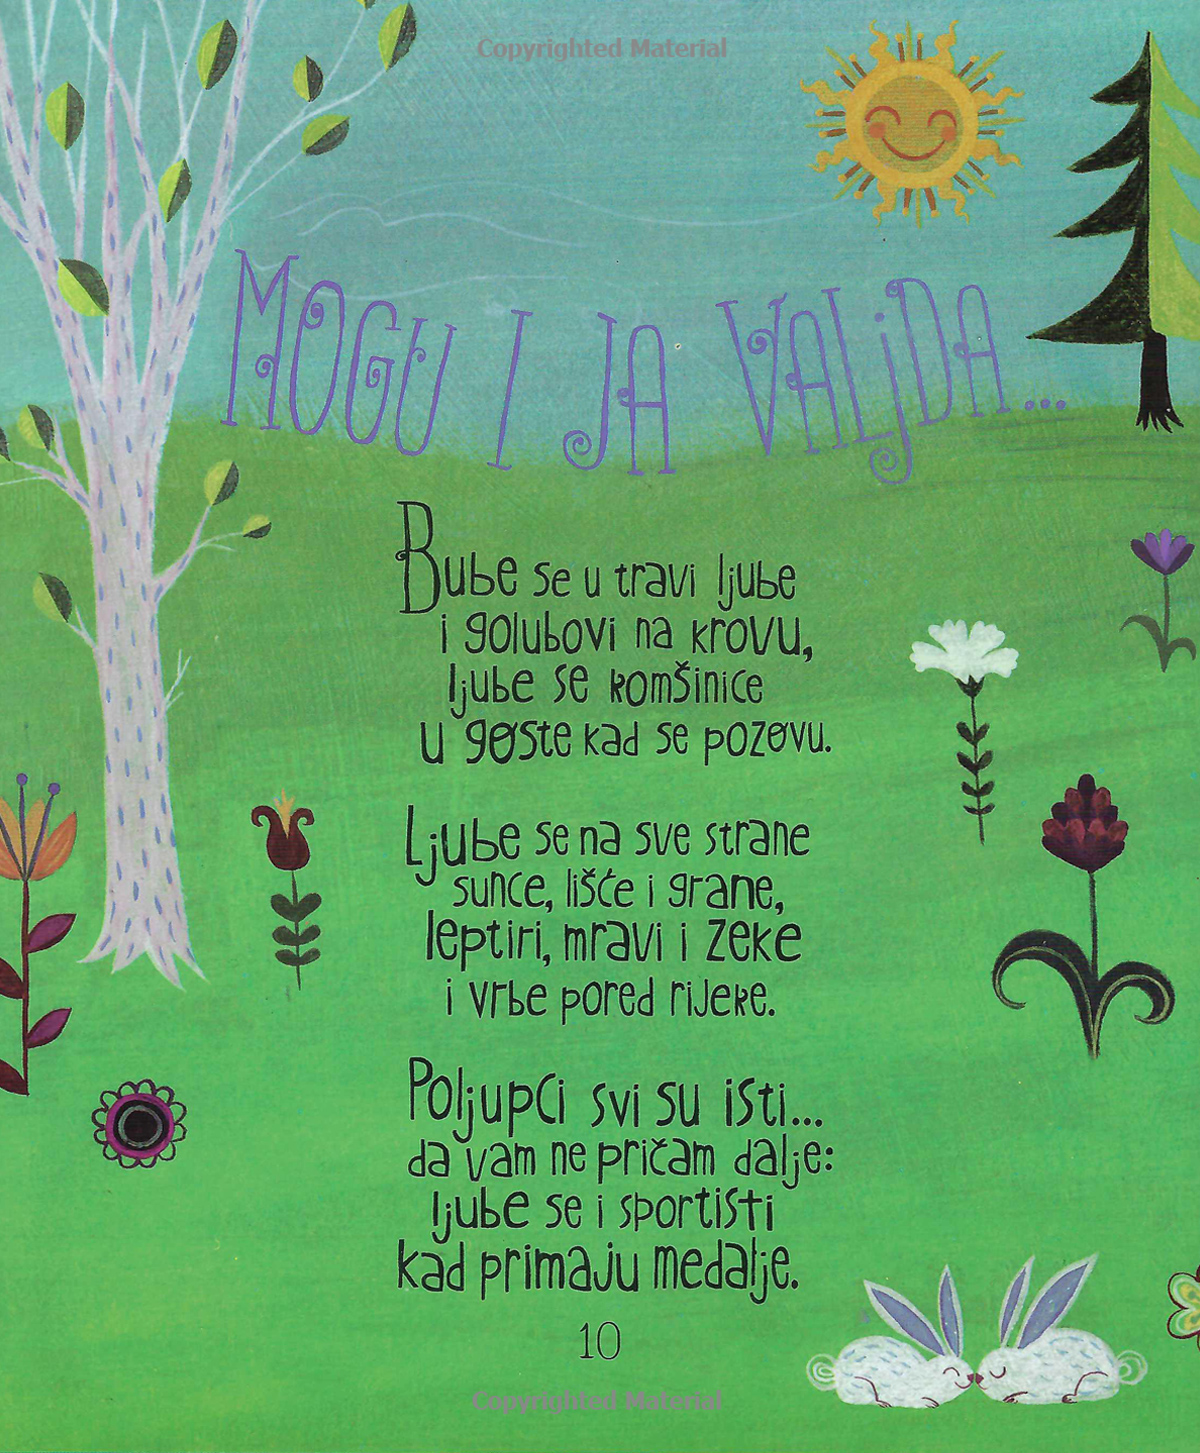 Copyrighted Material
MOGU I JA VALJDA...
Bube se u travi ljube
i golubovi na krovu,
ljube se komšinice
u goste kad se pozovu.
Ljube se na sve strane
sunce, lišće i grane,
leptiri, mravi i zeke
i vrbe pored rijeke.
Poljupci svi su isti...
da vam ne pričam dalje:
ljube se i sportisti
kad primaju medalje.
10
Copyrighted Material